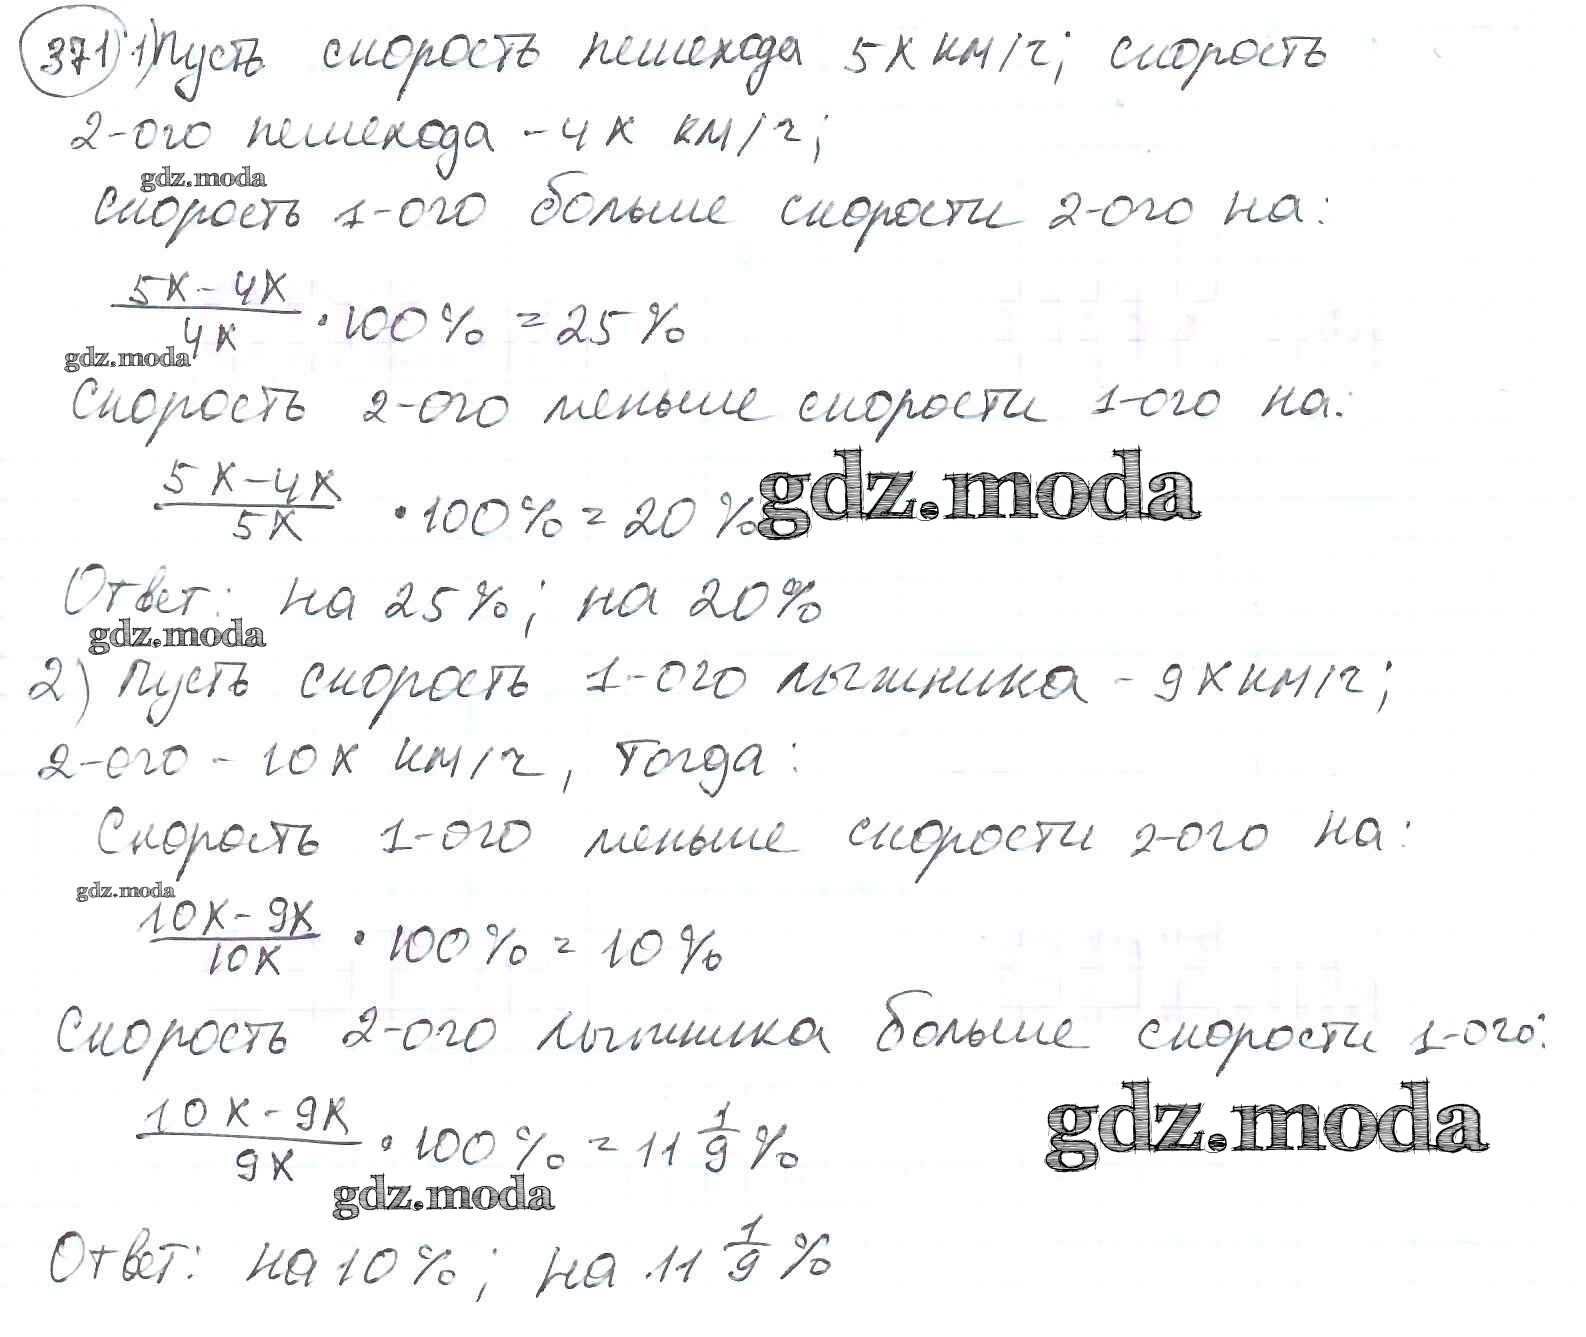 371 1) Пусть скорость пешехода 5х км/ч; скорость
2-ого пешехода - 4х км/ч;
gdz.moda
Скорость 1-ого больше скорости 2-ого на:
5х - 4х / 4х · 100% = 25%
gdz.moda
Скорость 2-ого меньше скорости 1-ого на:
5х - 4х / 5х · 100% = 20%
gdz.moda
Ответ: на 25%; на 20%
gdz.moda
2) Пусть скорость 1-ого лыжника - 9х км/ч;
2-ого - 10х км/ч, тогда:
Скорость 1-ого меньше скорости 2-ого на:
gdz.moda
10х - 9х / 10х · 100% = 10%
Скорость 2-ого лыжника больше скорости 1-ого:
10х - 9х / 9х · 100% = 11 1/9 %
gdz.moda
gdz.moda
Ответ: на 10%; на 11 1/9 %